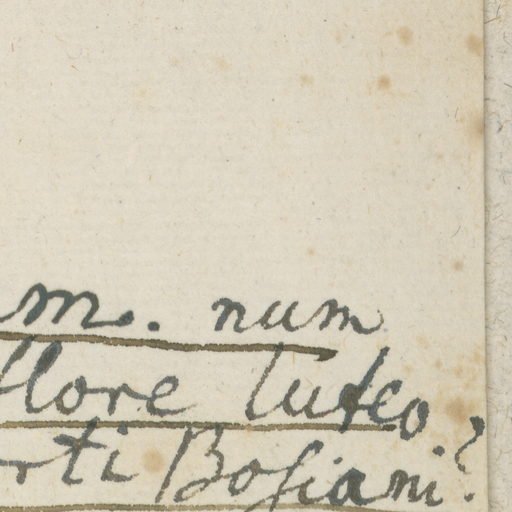 m. num
flore luteo?
rti Bosiani?